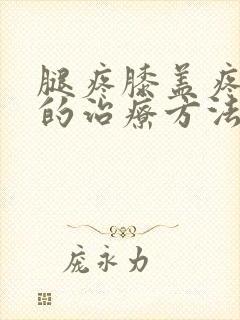 腿疼膝盖疼
的治疗方法
庞永力